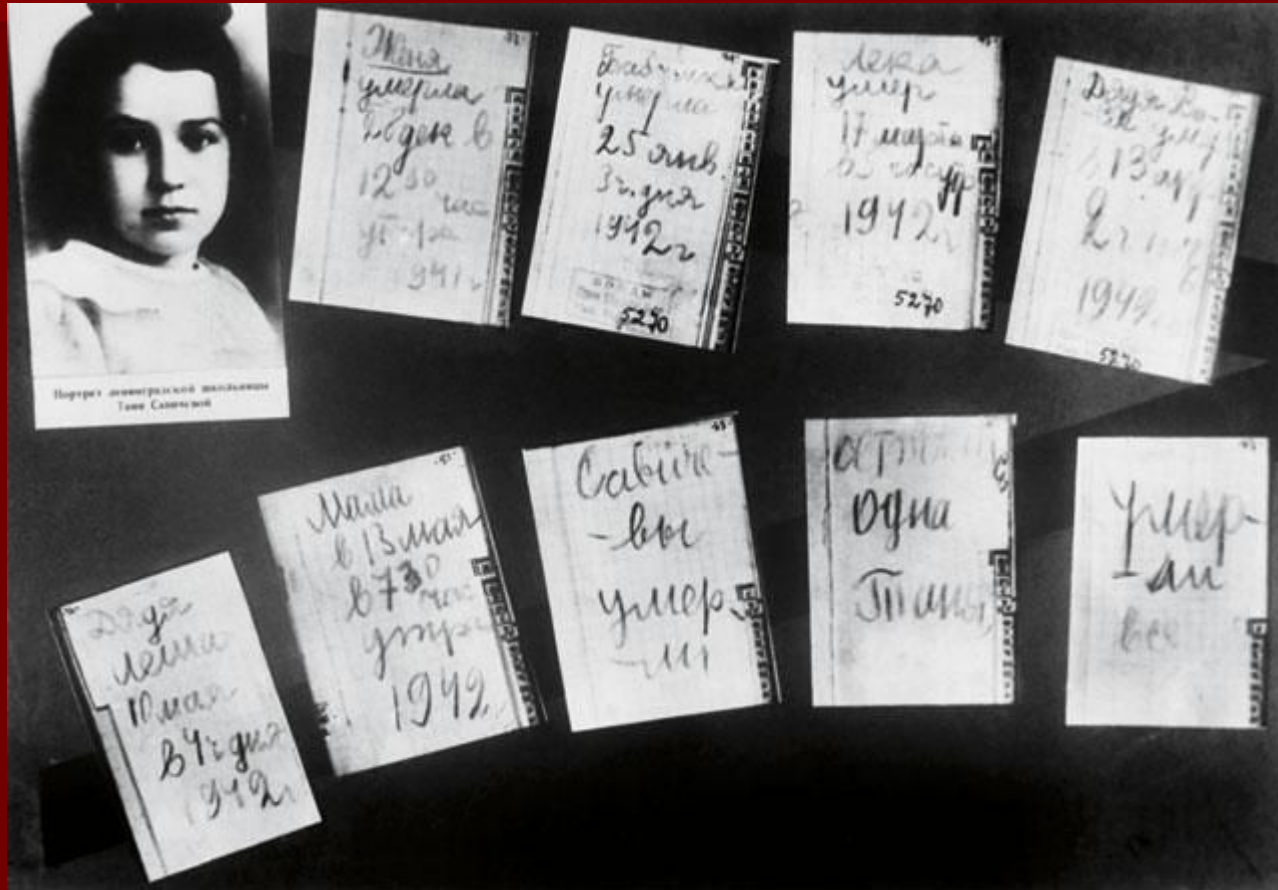 Портрет ленинградской школьницы
Тани Савичевой
Женя
умерла
28 дек в
12 30
час
утра
1941 г
Бабушка
умерла
25 янв.
3 ч. дня
1942 г
5270
Лека
умер
17 марта
в 5 час утр
1942 г
5270
Дядя Ва-
ся умер
в 13 апр
2 ч ночь
1942 г
5270
Дядя
Леша
10 мая
в 4 ч дня
1942 г
Мама
в 13 мая
в 7 30
час
утра
1942 г
Савиче-
-вы
умер-
-ли
осталась
одна
Таня
Умер-
-ли
все